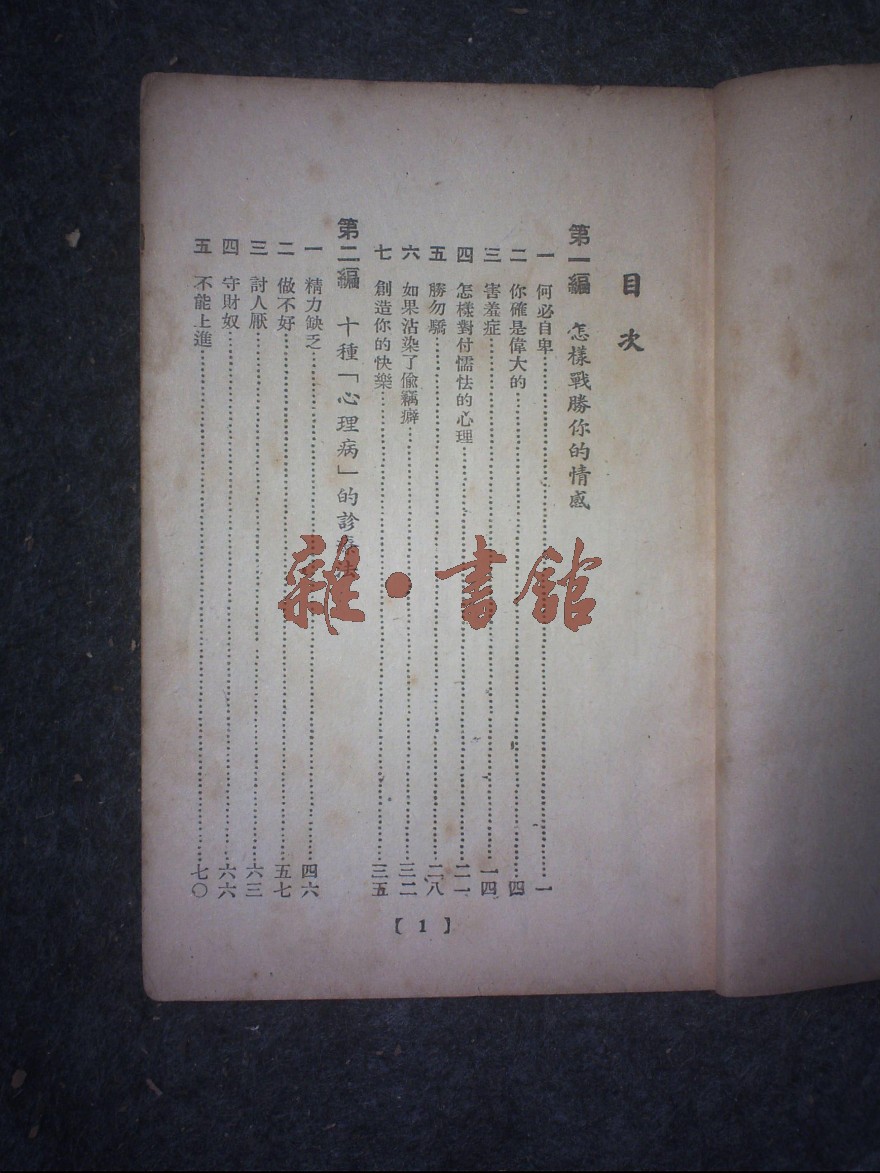 目次
第一編 怎樣戰勝你的情感
一 何必自卑……一
二 你確是偉大的……四
三 害羞症……一四
四 怎樣對付懦怯的心理……二一
五 勝勿驕……二八
六 如果沾染了偷竊癖……三二
七 創造你的快樂……三五
第二編 十種「心理病」的診
一 精力缺乏……四六
二 做不好……五七
三 討人厭……六三
四 守財奴……六六
五 不能上進……七〇
【1】
雜·書館